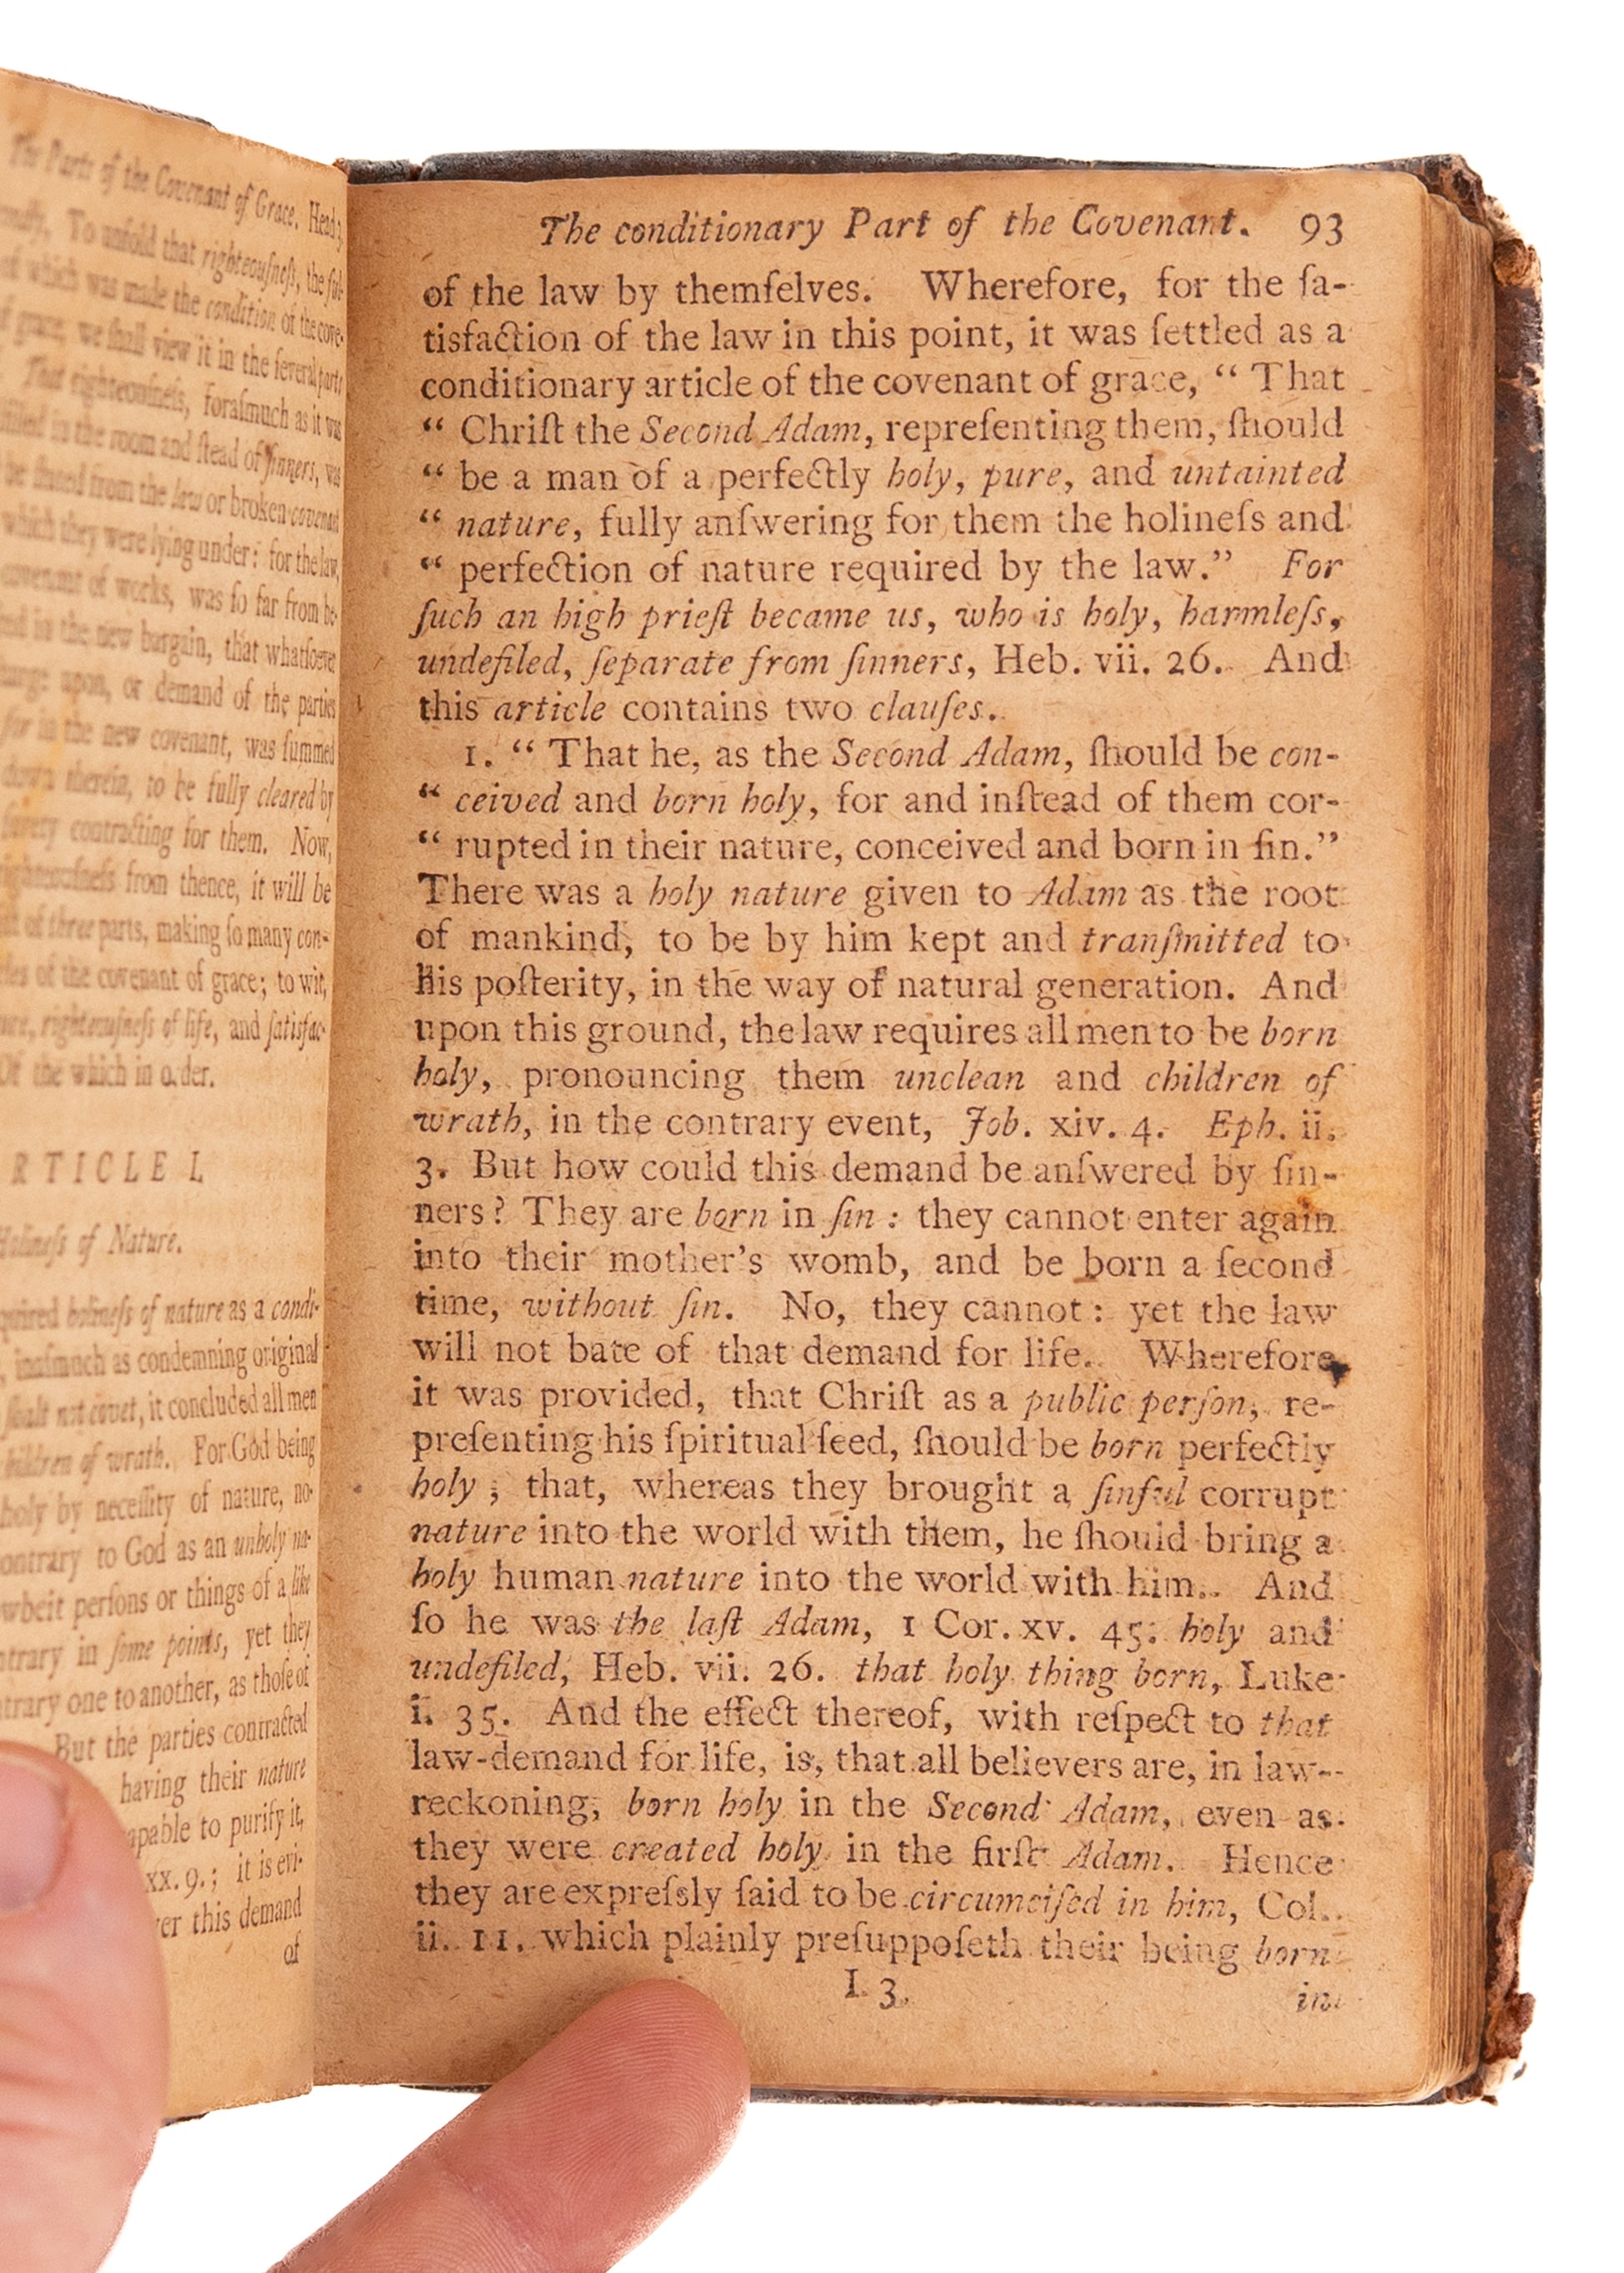 The Parts of the Covenant of Grace. Head 3.
To unfold that righteouſneſs, the ful-
of which was made the condition of the cove-
of grace, we ſhall view it in the ſeveral parts
That righteouſneſs, foraſmuch as it was
in the room and ſtead of ſinners, was
be ſtated from the law or broken covenant
which they were lying under: for the law,
covenant of works, was ſo far from be-
in the new bargain, that whatſoever
upon, or demand of the parties
for in the new covenant, was ſummed
down therein, to be fully cleared by
ſurety contracting for them. Now,
righteouſneſs from thence, it will be
of three parts, making ſo many con-
of the covenant of grace; to wit,
righteouſneſs of life, and ſatisfac-
Of the which in order.
RTICLE I.
Holineſs of Nature.
holineſs of nature as a condi-
inaſmuch as condemning original
ſhalt not covet, it concluded all men
children of wrath. For God being
holy by neceſſity of nature, no-
contrary to God as an unholy na-
perſons or things of a like
in ſome points, yet they
one to another, as thoſe of
But the parties contracted
having their nature
to purify it,
xx. 9.; it is evi-
this demand
of
The conditionary Part of the Covenant. 93
of the law by themſelves. Wherefore, for the ſa-
tisfaction of the law in this point, it was ſettled as a
conditionary article of the covenant of grace, “ That
“ Chriſt the Second Adam, repreſenting them, ſhould
“ be a man of a perfectly holy, pure, and untainted
“ nature, fully anſwering for them the holineſs and
“ perfection of nature required by the law.” For
ſuch an high prieſt became us, who is holy, harmleſs,
undefiled, ſeparate from ſinners, Heb. vii. 26. And
this article contains two clauſes.
1. “ That he, as the Second Adam, ſhould be con-
“ ceived and born holy, for and inſtead of them cor-
“ rupted in their nature, conceived and born in ſin.”
There was a holy nature given to Adam as the root
of mankind, to be by him kept and tranſmitted to
his poſterity, in the way of natural generation. And
upon this ground, the law requires all men to be born
holy, pronouncing them unclean and children of
wrath, in the contrary event, Job. xiv. 4. Eph. ii.
3. But how could this demand be anſwered by ſin-
ners? They are born in ſin: they cannot enter again
into their mother’s womb, and be born a ſecond
time, without ſin. No, they cannot: yet the law
will not bate of that demand for life. Wherefore
it was provided, that Chriſt as a public perſon, re-
preſenting his ſpiritual ſeed, ſhould be born perfectly
holy; that, whereas they brought a ſinful corrupt
nature into the world with them, he ſhould bring a
holy human nature into the world with him. And
ſo he was the laſt Adam, 1 Cor. xv. 45. holy and
undefiled, Heb. vii. 26. that holy thing born, Luke
i. 35. And the effect thereof, with reſpect to that
law-demand for life, is, that all believers are, in law-
reckoning, born holy in the Second Adam, even as
they were created holy in the firſt Adam. Hence
they are expreſsly ſaid to be circumciſed in him, Col.
ii. 11. which plainly preſuppoſeth their being born
I 3
in